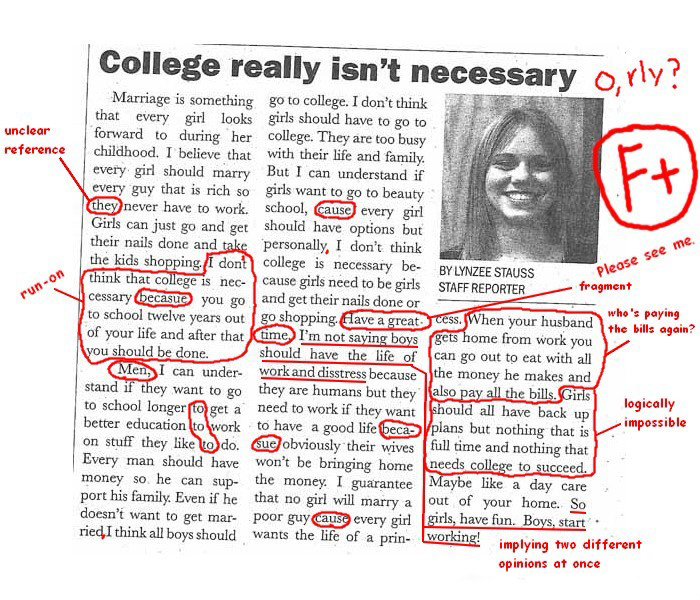 College really isn't necessary
o, rly?
F+
Please see me.
unclear
reference
run-on
Marriage is something
that every girl looks
forward to during her
childhood. I believe that
every girl should marry
every guy that is rich so
they never have to work.
Girls can just go and get
their nails done and take
the kids shopping. I don't
think that college is nec-
cessary becasue you go
to school twelve years out
of your life and after that
you should be done.
Men, I can under-
stand if they want to go
to school longer to get a
better education to work
on stuff they like to do.
Every man should have
money so he can sup-
port his family. Even if he
doesn't want to get mar-
ried, I think all boys should
go to college. I don't think
girls should have to go to
college. They are too busy
with their life and family.
But I can understand if
girls want to go to beauty
school, cause every girl
should have options but
personally, I don't think
college is necessary be-
cause girls need to be girls
and get their nails done or
go shopping. Have a great
time, I'm not saying boys
should have the life of
work and disstress because
they are humans but they
need to work if they want
to have a good life beca-
sue obviously their wives
won't be bringing home
the money. I guarantee
that no girl will marry a
poor guy cause every girl
wants the life of a prin-
BY LYNZEE STAUSS
STAFF REPORTER
cess. When your husband
gets home from work you
can go out to eat with all
the money he makes and
also pay all the bills. Girls
should all have back up
plans but nothing that is
full time and nothing that
needs college to succeed.
Maybe like a day care
out of your home. So
girls, have fun. Boys, start
working!
fragment
who's paying
the bills again?
logically
impossible
implying two different
opinions at once